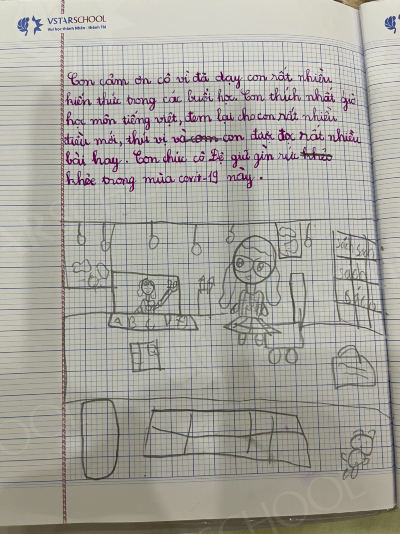 VSTARSCHOOL
Con cảm ơn cô vì đã dạy con rất nhiều
kiến thức trong các buổi học. Con thích nhất giờ
học môn tiếng việt, đem lại cho con rất nhiều
điều mới, thú vị và con được đọc rất nhiều
bài hay. Con chúc cô Lệ giữ gìn sức
khỏe trong mùa covit-19 này.
sách
sách
sách
A B C